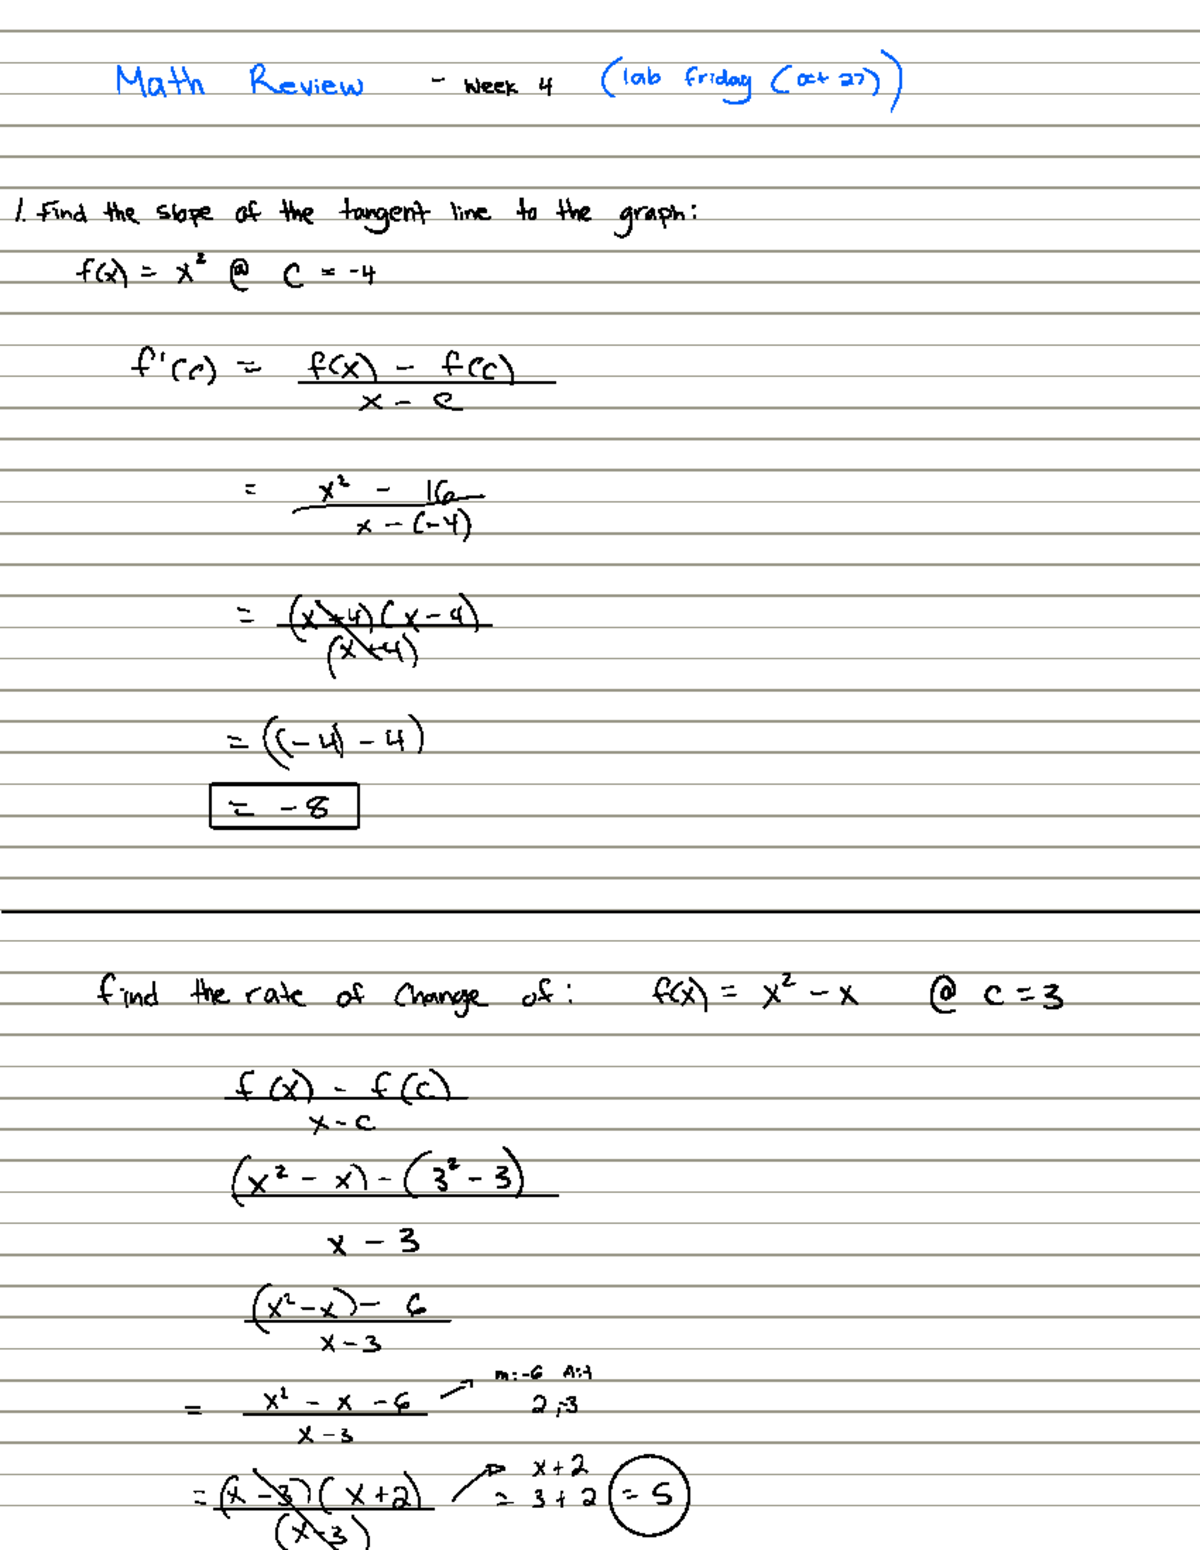 Math Review - Week 4 (lab friday (oct 27))
1. Find the slope of the tangent line to the graph:
f(x) = x² @ C = -4
f'(c) = f(x) - f(c)
x - c
= x² - 16
x - (-4)
= (x+4)(x-4)
(x+4)
= ((-4) - 4)
= -8
find the rate of change of: f(x) = x² - x @ c = 3
f(x) - f(c)
x - c
(x² - x) - (3² - 3)
x - 3
(x² - x) - 6
x - 3
m:-6 A:-1
= x² - x - 6 → 2,-3
x - 3
x + 2
= (x - 3)(x + 2) → = 3 + 2 = 5
(x - 3)